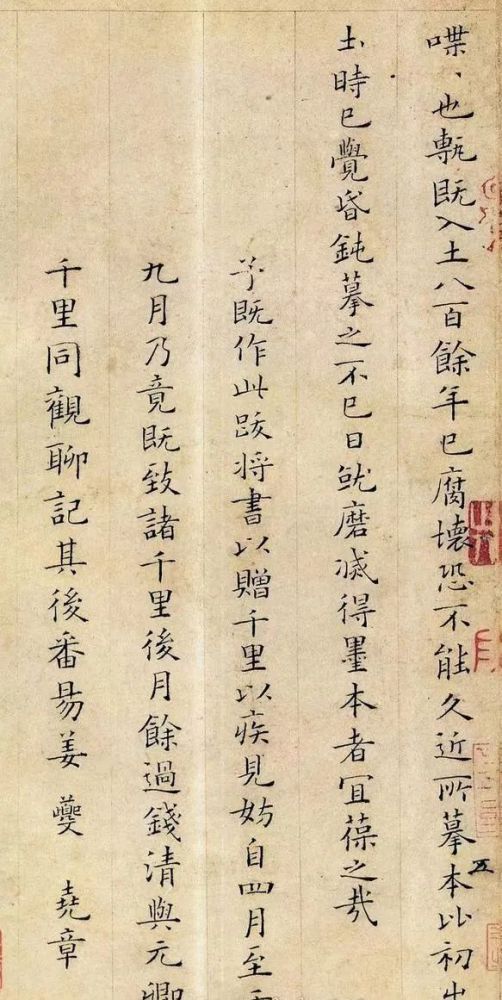 喋、也甎既入土八百餘年已腐壞恐不能久近所摹本比初出
五
土時已覺昏鈍摹之不已日就磨滅得墨本者宜葆之哉
予既作此跋将書以贈千里以疾見妨自四月至
九月乃竟既致諸千里後月餘過錢清與元卿
千里同觀聊記其後番昜姜夔 堯章